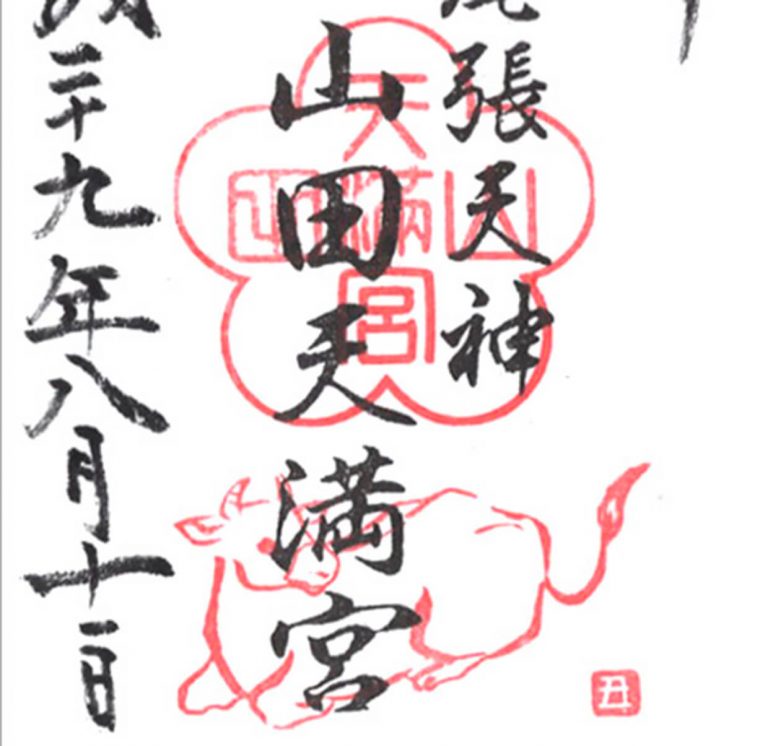 尾張天神
山田天満宮
成二十九年八月十一日
天満宮
山
丑